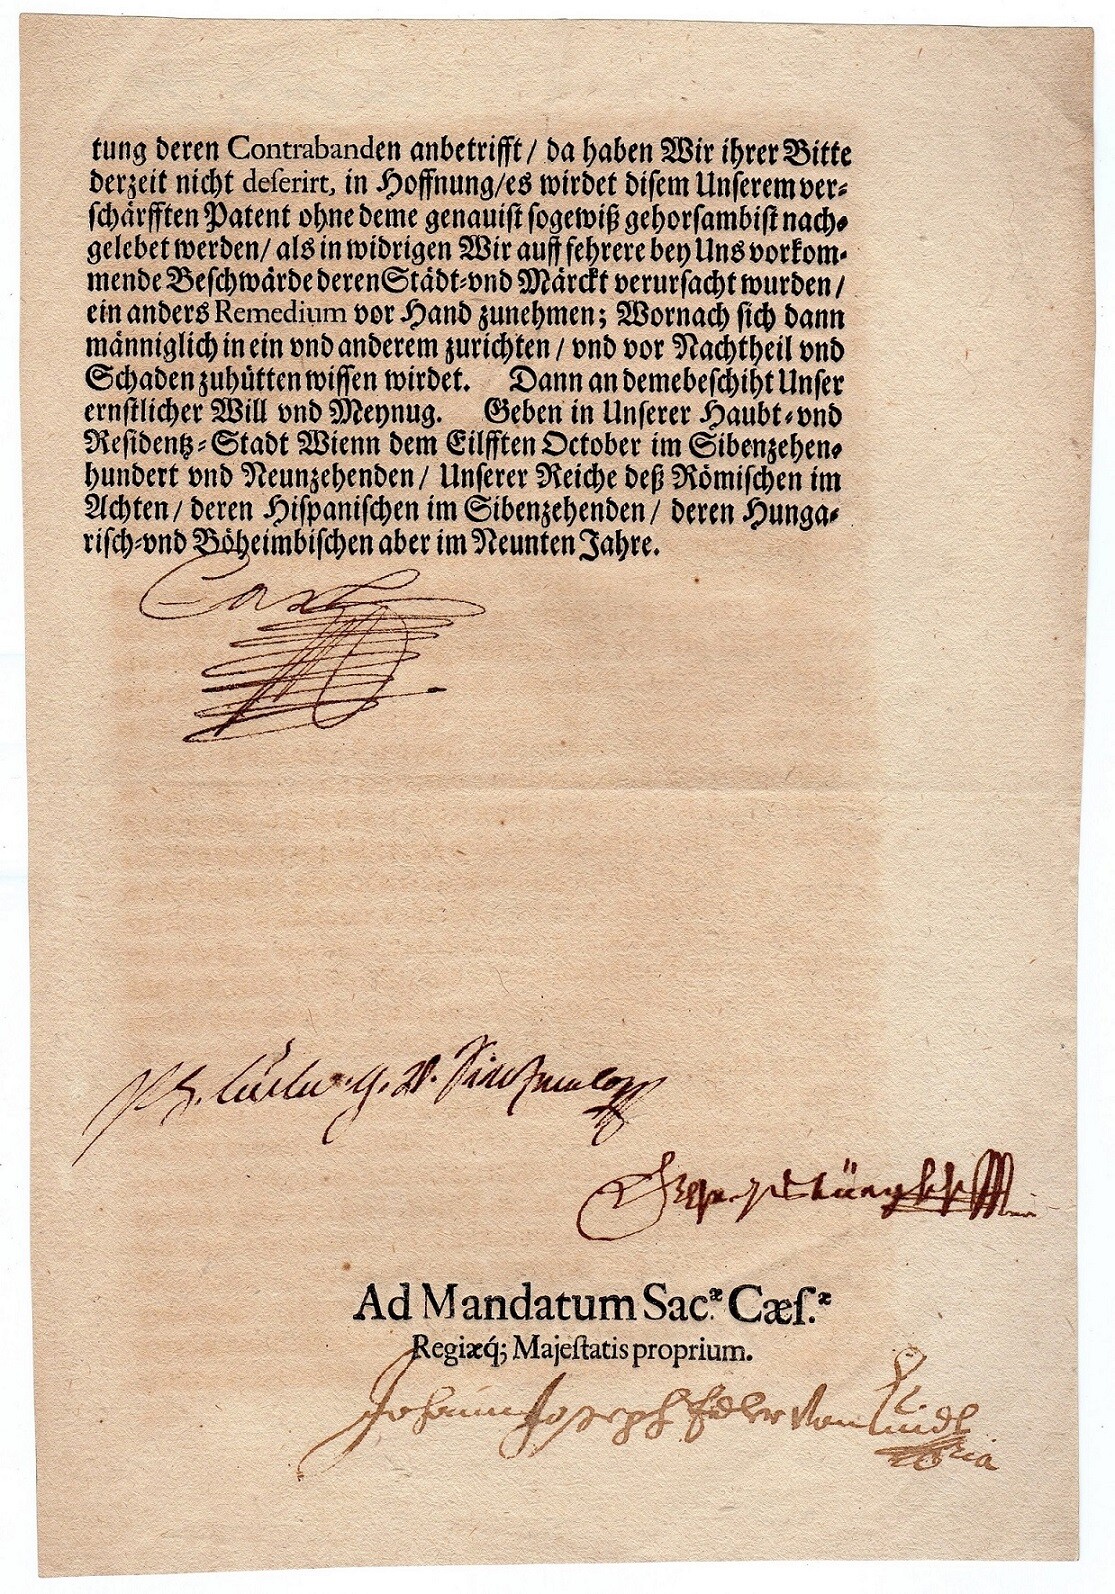 tung deren Contrabanden anbetrifft / da haben Wir ihrer Bitte
derzeit nicht deferirt, in Hoffnung/es wirdet disem Unserem ver-
schärfften Patent ohne deme genauist sogewiß gehorsambist nach-
gelebet werden/ als in widrigen Wir auff fehrere bey Uns vorkom-
mende Beschwärde deren Städt-vnd Märckt verursacht wurden /
ein anders Remedium vor Hand zunehmen; Wornach sich dann
männiglich in ein vnd anderem zurichten / vnd vor Nachtheil vnd
Schaden zuhütten wissen wirdet. Dann an deme beschiht Unser
ernstlicher Will vnd Meynug. Geben in Unserer Haubt-vnd
Residentz-Stadt Wienn dem Eilfften October im Sibenzehen-
hundert vnd Neunzehenden / Unserer Reiche deß Römischen im
Achten / deren Hispanischen im Sibenzehenden / deren Hunga-
risch-vnd Böheimbischen aber im Neunten Jahre.
Carl
Ad Mandatum Sac.æ Cæs.æ
Regiæq́; Majestatis proprium.
Johann Joseph Edler von